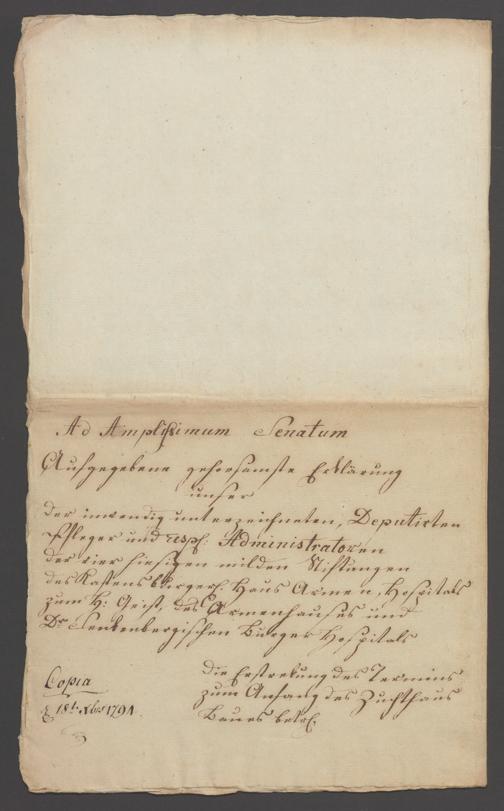 Ad Amplissimum Senatum
Aufgegebene gehorsamste Erklärung
unser
der inwendig unterzeichneten, Deputirten
Pfleger und resp: Administratoren
der vier hiesigen milden Stiftungen
des Kastens, Haus Armen, Hospitals
zum H: Geist, des Armenhauses und
Dr. Senkenbergischen Burger Hospitals
Copia
18t. Xbr 1794
die Erstrekung des Termins
zum Anfang des Zuchthaus
Baues betr.